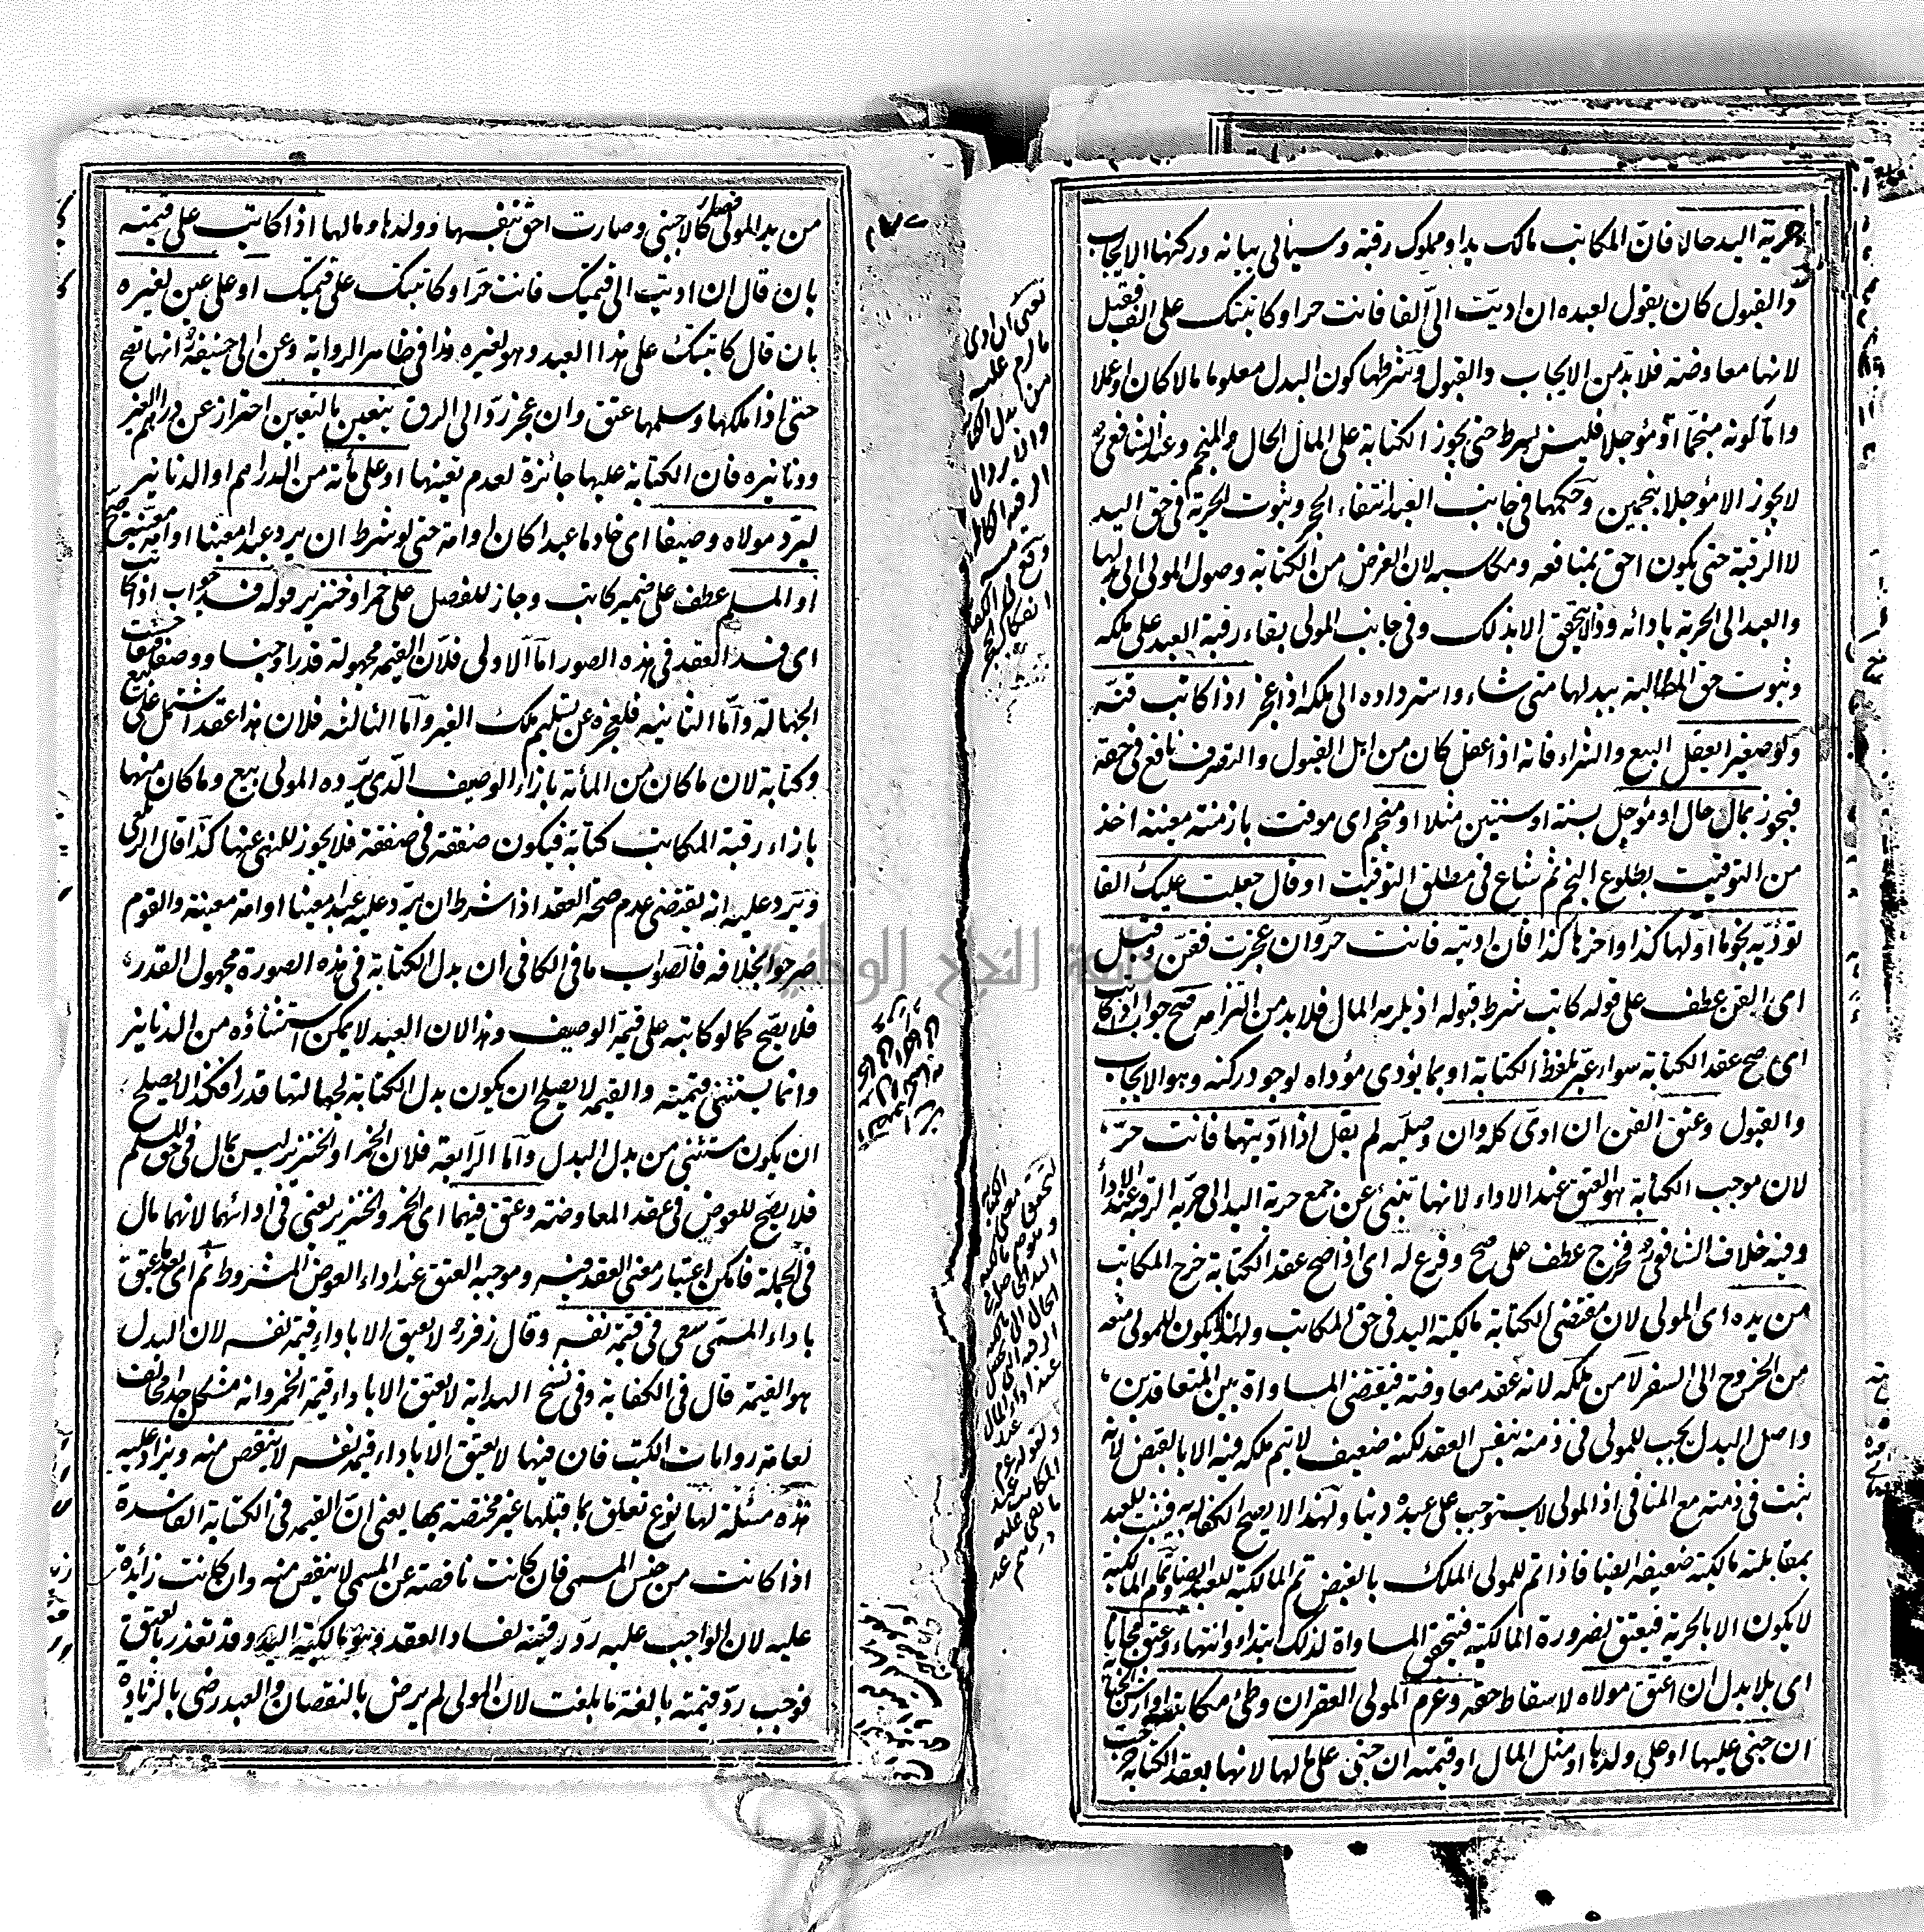 حرية اليد حالا فان المكاتب مالك يدا ومملوك رقبة وسيأتي بيانه وركنها الايجاب
والقبول كان يقول لعبده ان اديت الىّ الفا فانت حر او كاتبتك على الف فقبل
لانها معاوضة فلا بد من الايجاب والقبول وشرطها كون البدل معلوما مالا كان او عملا
واما كونه منجما او مؤجلا فليس بشرط حتى يجوز الكتابة على المال الحال والمنجم وعند الشافعي
لا يجوز الا مؤجلا بنجمين وحكمها في جانب العبد انتفاء الحجر وثبوت الحرية في حق اليد
لا الرقبة حتى يكون احق بمنافعه ومكاسبه لان الغرض من الكتابة وصول المولى الى بدلها
والعبد الى الحرية بادائه وذا لا يتحقق الا بذلك وفي جانب المولى بقاء رقبة العبد على ملكه
وثبوت حق المطالبة ببدلها متى شاء واسترداده الى ملكه اذا عجز اذا كاتب قنّه
ولو صغيرا يعقل البيع والشراء فانه اذا عقل كان من اهل القبول والتصرف نافع في حقه
فيجوز بمال حال او مؤجل بسنة او سنتين مثلا او منجم اى موقت بازمنة معينة اخذ
من التوقيت بطلوع النجم ثم شاع في مطلق التوقيت او قال جعلت عليك الفا
تؤديه نجوما اولها كذا واخرها كذا فان اديته فانت حر وان عجزت فقن وقبل
اى القن عطف على قوله كاتب شرط قبوله اذ يلزمه المال فلا بد من التزامه صح جواب اذا كاتب
اى صح عقد الكتابة سواء عبر بلفظ الكتابة او بما يؤدى مؤداه لوجود ركنه وهو الايجاب
والقبول وعتق القن ان ادى كله وان وصلية لم يقل اذا اديتها فانت حر
لان موجب الكتابة هو العتق عند الاداء لانها تنبئ عن جمع حرية اليد الى حرية الرقبة عند الاداء
وفيه خلاف الشافعي فخرج عطف على صح وفرع له اى اذا صح عقد الكتابة خرج المكاتب
من يده اى المولى لان مقتضى الكتابة مالكية اليد في حق المكاتب ولهذا لا يكون للمولى منعه
من الخروج الى السفر لا من ملكه لانه عقد معاوضة فيقتضى المساواة بين المتعاقدين
واصل البدل يجب للمولى في ذمته بنفس العقد لكنه ضعيف لا يتم ملكه فيه الا بالقبض لانه
يثبت في ذمته مع المنافى اذ المولى لا يستوجب على عبده دينا ولهذا لا يصح الكفالة به فيثبت للعبد
بمقابلته مالكية ضعيفة ايضا فاذا تم للمولى الملك بالقبض تم المالكية للعبد ايضا وتمام المالكية
لا يكون الا بالحرية فيعتق لضرورة المالكية فيتحقق المساواة لذلك ابتداء وانتهاء وعتق مجانا
اى بلا بدل ان اعتق مولاه لاسقاط حقه وغرم المولى العقر ان وطئ مكاتبته او ارش الجناية
ان جنى عليها او على ولدها او مثل المال او قيمته ان جنى على مالها لانها بعقد الكتابة خرجت
من يد المولى كالاجنبي وصارت احق بنفسها وولدها ومالها فصل اذا كاتب على قيمته
بان قال ان اديت الى قيمتك فانت حر او كاتبتك على قيمتك او على عين لغيره
بان قال كاتبتك على هذا العبد وهو لغيره هذا في ظاهر الرواية وعن ابي حنيفة انها تصح
حتى اذا ملكها وسلمها عتق وان عجز رد الى الرق بتعين بالتعيين احتراز عن دراهم الغير
ودنانيره فان الكتابة عليها جائزة لعدم تعينها او على مائة من الدراهم او الدنانير
ليرد مولاه وصيفا اى خادما عبدا كان او امة حتى لو شرط ان يرد عبدا معينا او امة معينة صح
او المسلم عطف على ضمير كاتب وجاز للفصل على خمر او خنزير قوله فسد جواب اذا كاتب
اى فسد العقد في هذه الصور اما الاولى فلان القيمة مجهولة قدرا وجنسا ووصفا فتفاحشت
الجهالة واما الثانية فلعجزه عن تسليم ملك الغير واما الثالثة فلان هذا عقد اشتمل على بيع
وكتابة لان ما كان من المائة بازاء الوصيف الذى يرده المولى بيع وما كان منها
بازاء رقبة المكاتب كتابة فيكون صفقة في صفقة فلا يجوز للنهى عنها كذا قال الزيلعي
ويرد عليه انه يقتضى عدم صحة العقد اذا شرط ان يرد عليه عبدا معينا او امة معينة والقوم
صرحوا بخلافه فالصواب ما في الكافي ان بدل الكتابة في هذه الصورة مجهول القدر
فلا يصح كما لو كاتبه على قيمة الوصيف وهذا لان العبد لا يمكن استثناؤه من الدنانير
وانما يستثنى قيمته والقيمة لا يصلح ان يكون بدل الكتابة لجهالتها قدرا فكذا لا يصلح
ان يكون مستثنى من بدل البدل واما الرابعة فلان الخمر والخنزير ليس بمال في حق المسلم
فلا يصح للعوض في عقد المعاوضة وعتق فيهما اى الخمر والخنزير يعنى في ادائهما لانهما مال
في الجملة فامكن اعتبار معنى العقد فيه وموجبه العتق عند اداء العوض المشروط ثم اى بعد ما عتق
باداء المسمى سعى في قيمة نفسه وقال زفر لا يعتق الا باداء قيمة نفسه لان البدل
هو القيمة قال في الكفاية وفي نسخ الهداية لا يعتق الا باداء قيمة الخمر وانه مشكل جدا مخالف
لعامة روايات الكتب فان فيها لا يعتق الا باداء قيمة نفسه لا ينقص منه ويزاد عليه
هذه مسئلة لها نوع تعلق بما قبلها غير مختصة بها يعنى ان القيمة في الكتابة الفاسدة
اذا كانت من جنس المسمى فان كانت ناقصة عن المسمى لا ينقص منه وان كانت زائدة
عليه لان الواجب عليه رد رقبته لفساد العقد وهو مالكية اليد وقد تعذر بالعتق
فوجب رد قيمته بالغة ما بلغت لان المولى لم يرض بالنقصان والعبد رضى بالزيادة
جامعة النجاح الوطنية